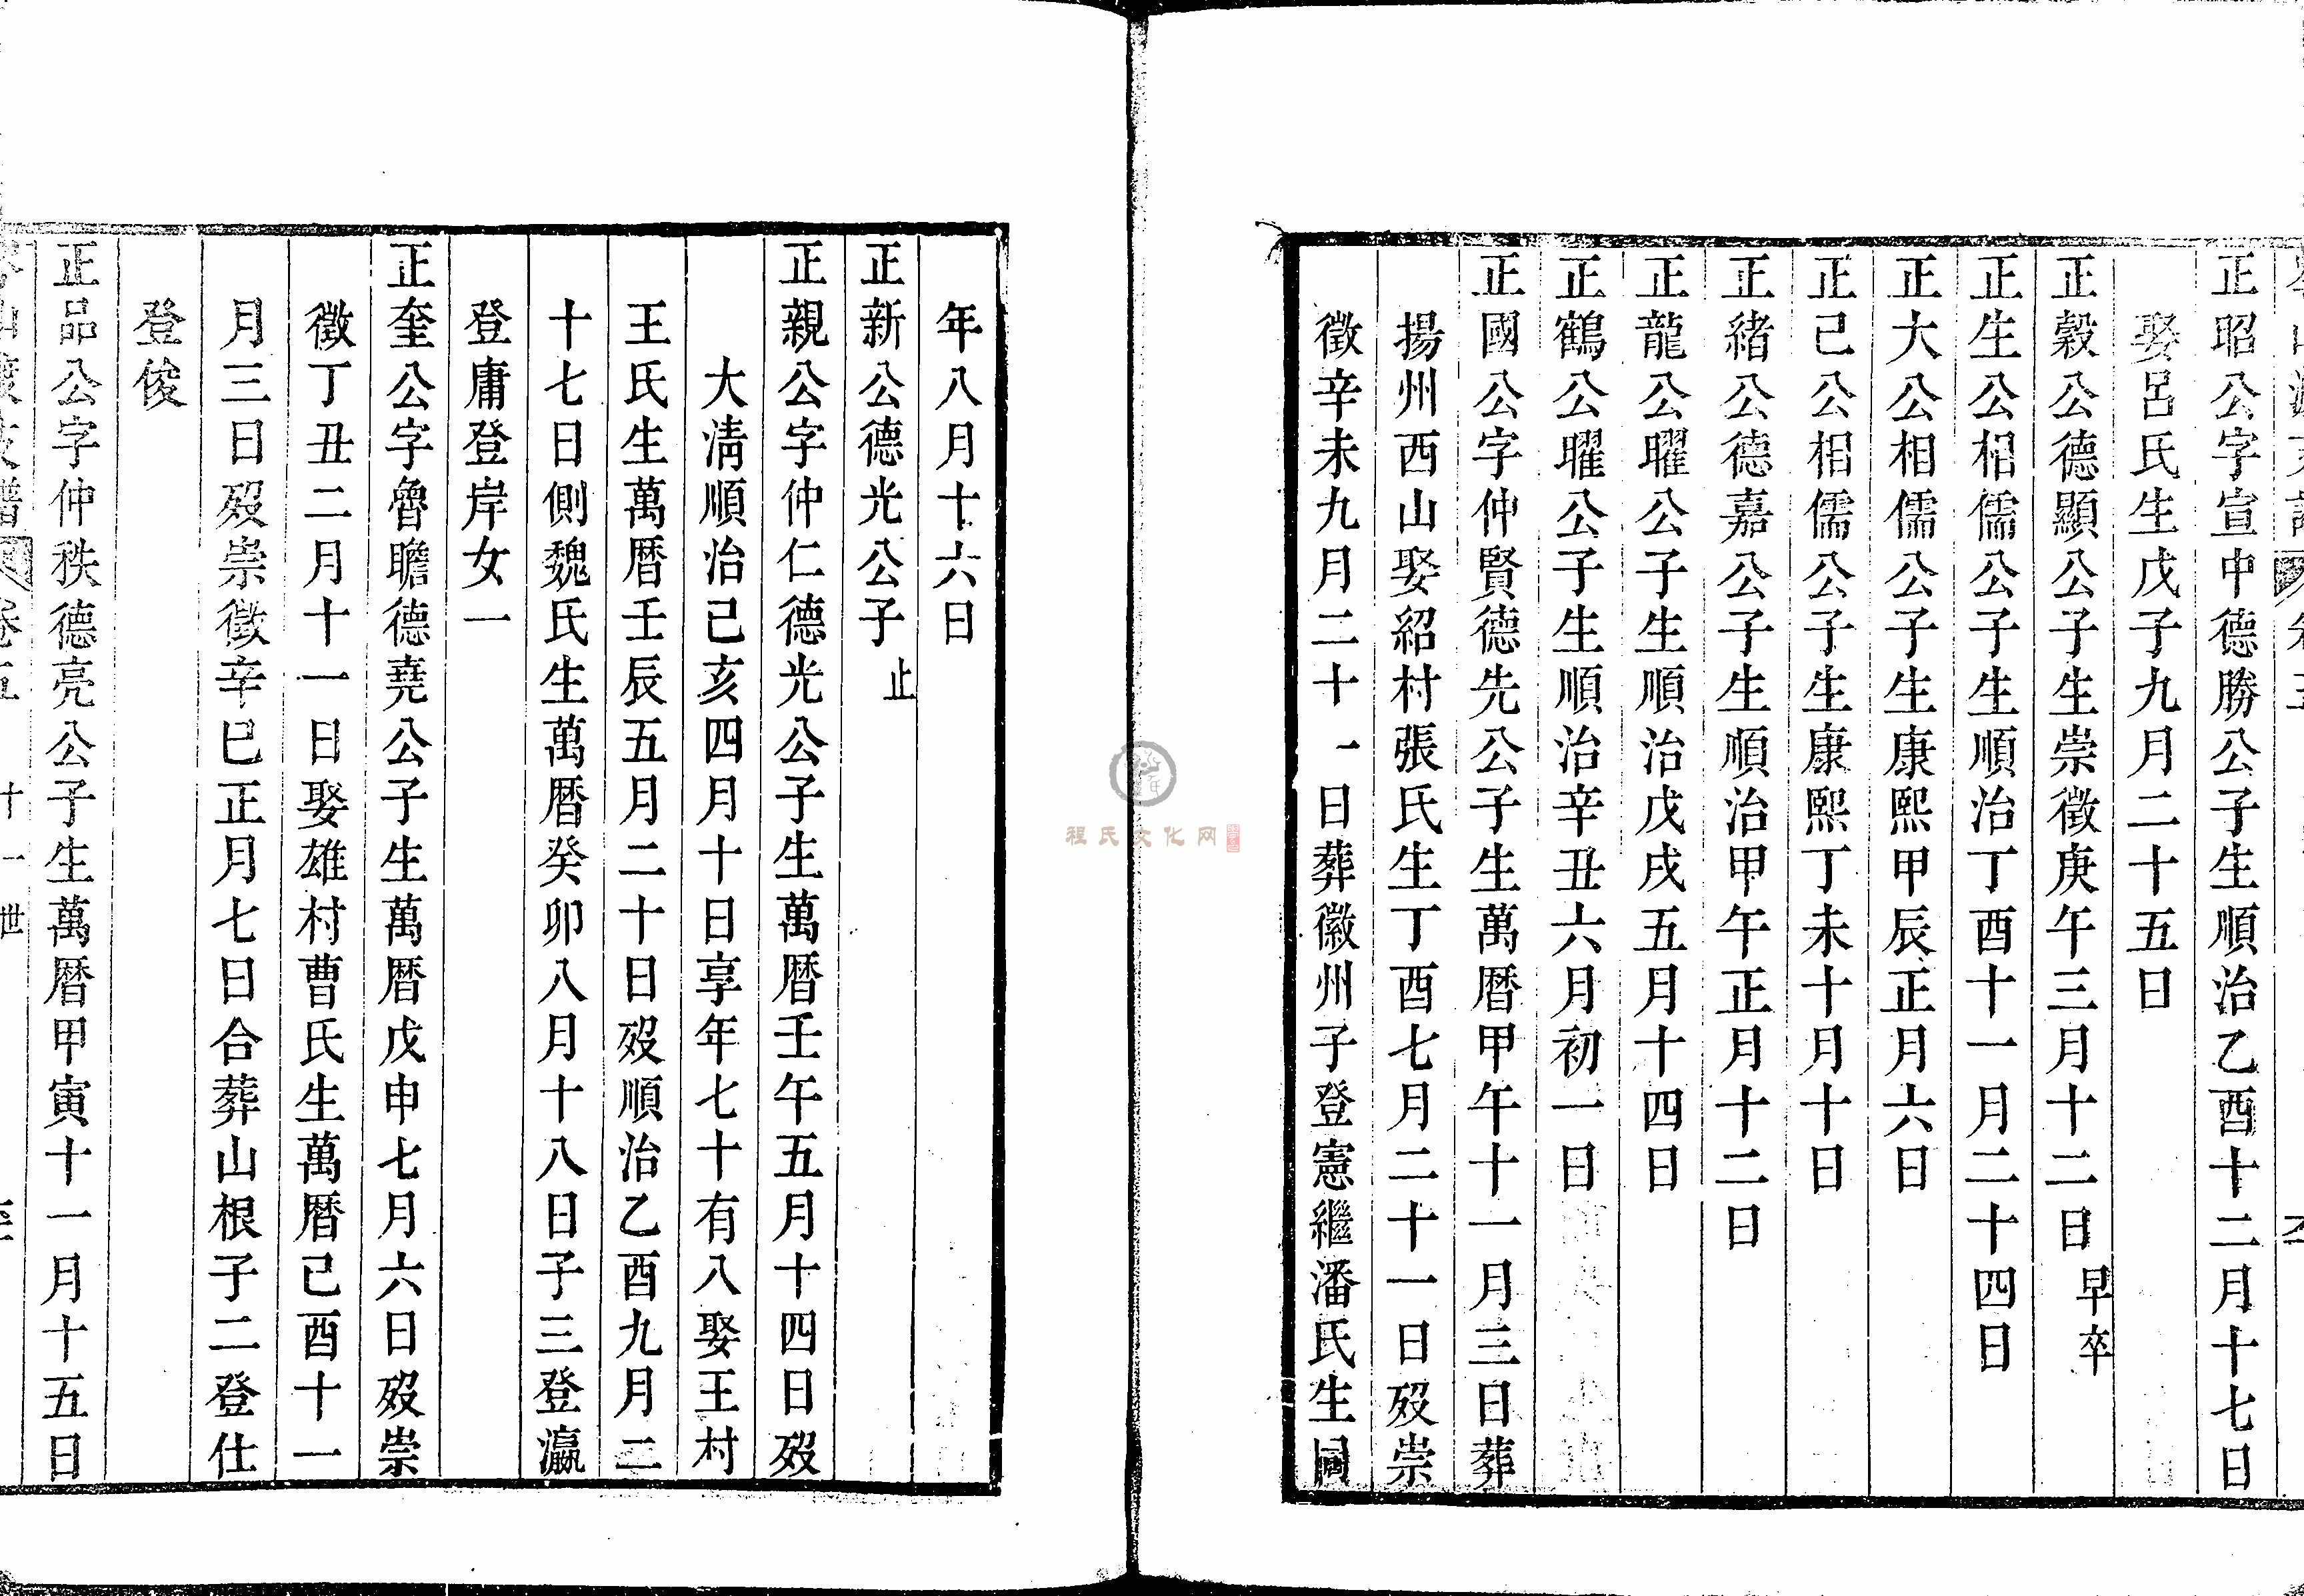 正昭公字宣中德勝公子生順治乙酉十二月十七日
娶呂氏生戊子九月二十五日
正穀公德顯公子生崇徵庚午三月十二日早卒
正生公相儒公子生順治丁酉十一月二十四日
正大公相儒公子生康熙甲辰正月六日
正己公相儒公子生康熙丁未十月十日
正緒公德嘉公子生順治甲午正月十二日
正龍公曜公子生順治戊戌五月十四日
正鶴公曜公子生順治辛丑六月初一日
正國公字仲賢德先公子生萬曆甲午十一月三日葬
揚州西山娶紹村張氏生丁酉七月二十一日歿崇
徵辛未九月二十一日葬徽州子登憲繼潘氏生同
年八月十六日
正新公德光公子止
正親公字仲仁德光公子生萬曆壬午五月十四日歿
大清順治己亥四月十日享年七十有八娶王村
王氏生萬曆壬辰五月二十日歿順治乙酉九月二
十七日側魏氏生萬曆癸卯八月十八日子三登瀛
登庸登岸女一
正奎公字魯瞻德堯公子生萬曆戊申七月六日歿崇
徵丁丑二月十一日娶雄村曹氏生萬曆己酉十一
月三日歿崇徵辛巳正月七日合葬山根子二登仕
登俊
正品公字仲秩德亮公子生萬曆甲寅十一月十五日
十一世
程氏文化网